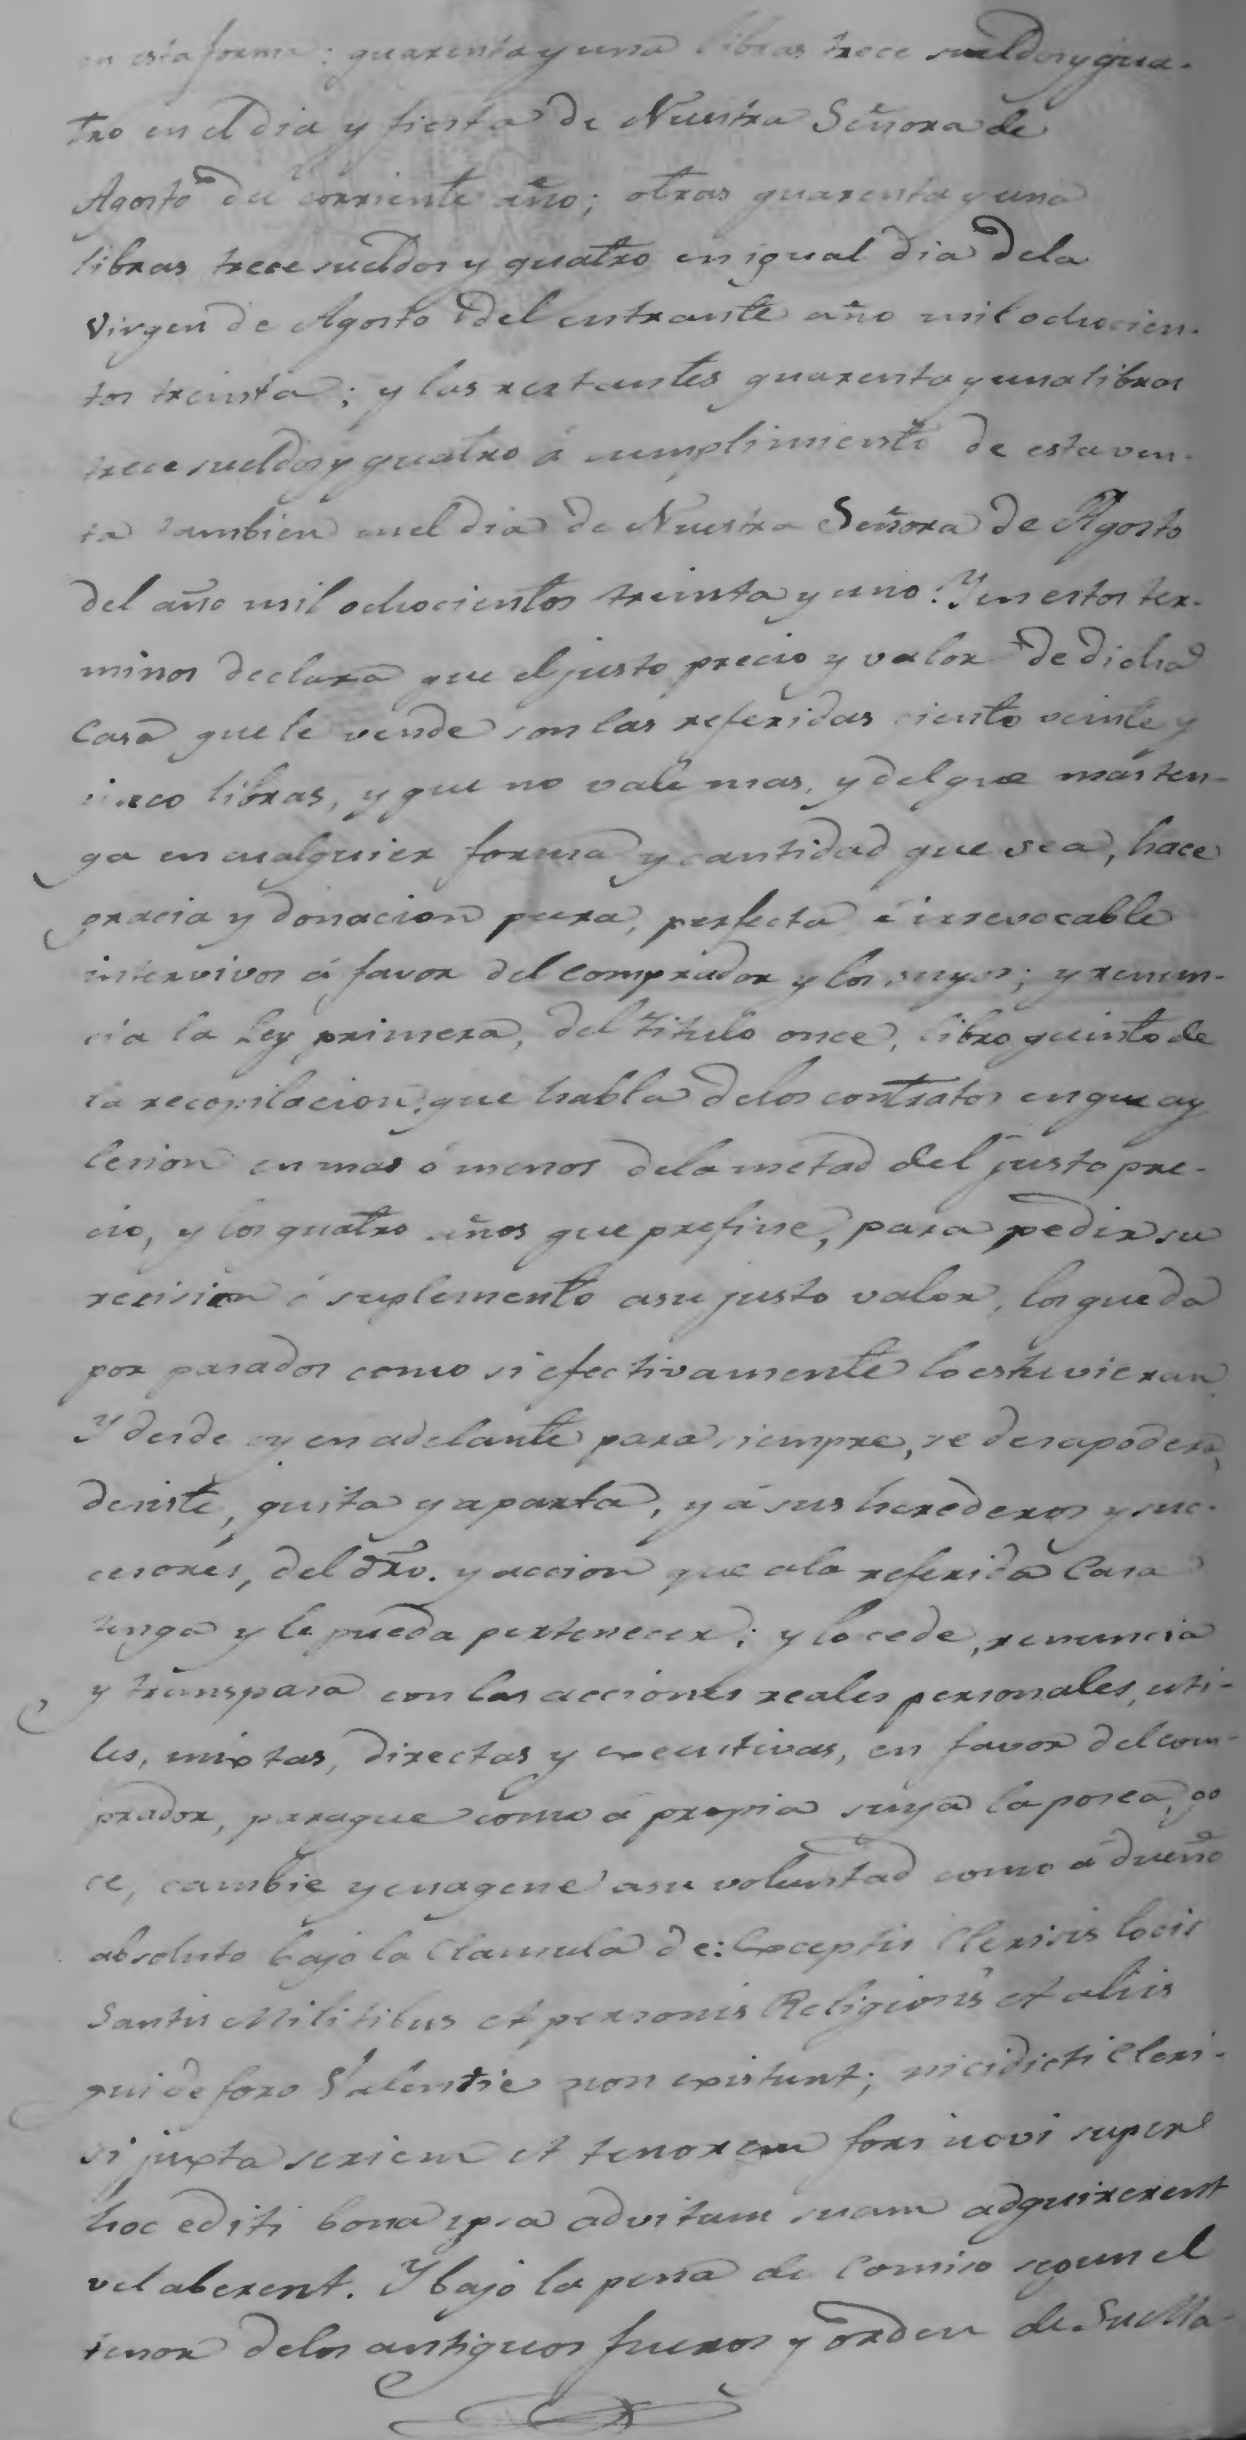 en esta forma: quarenta y una libras trece sueldos y qua-
tro en el dia y fiesta de Nuestra Señora de
Agosto del corriente año; otras quarenta y una
libras trece sueldos y quatro en igual dia dela
Virgen de Agosto del entrante año mil ochocien-
tos treinta; y las restantes quarenta y una libras
trece sueldos y quatro á cumplimiento de esta ven-
ta tambien en el dia de Nuestra Señora de Agosto
del año mil ochocientos treinta y uno. Y en estos ter-
minos declara que el justo precio y valor de dicha
Casa que le vende son las referidas ciento veinte y
cinco libras, y que no vale mas, y del que mas ten-
ga en cualquier forma y cantidad que sea, hace
gracia y donacion pura, perfecta é irrevocable
intervivos á favor del comprador y los suyos; y renun-
cia la Ley primera, del titulo once, libro quinto de
la recopilacion, que habla delos contratos en que ay
lesion en mas ó menos dela metad del justo pre-
cio, y los quatro años que prefine, para pedir su
recision ó suplemento asu justo valor, los que da
por pasados como si efectivamente lo estuvieran
Y desde oy en adelante para siempre, se desapodera,
desiste, quita y aparta, y á sus herederos y suc-
cesores, del dro. y accion que ala referida Casa
tenga y le pueda pertenecer; y lo cede, renuncia
y transpasa con las acciones reales personales, uti-
les, mixtas, directas y executivas, en favor del com-
prador, paraque como á propia suya la posea, go
ce, cambie y enagene asu voluntad como á dueño
absoluto bajo la Clausula de: Exceptis Clerisis locis
Santis Militibus et personis Religionis et aliis
qui de foro Valentie non existunt; nici dicti Cleri-
si juxta seriem et tenorem fori novi super
hoc editi bona ipsa advitam suam adquirerent
vel aberent. Y bajo la pena de Comiso segun el
tenor delos antiguos fueros y orden de Su Ma-